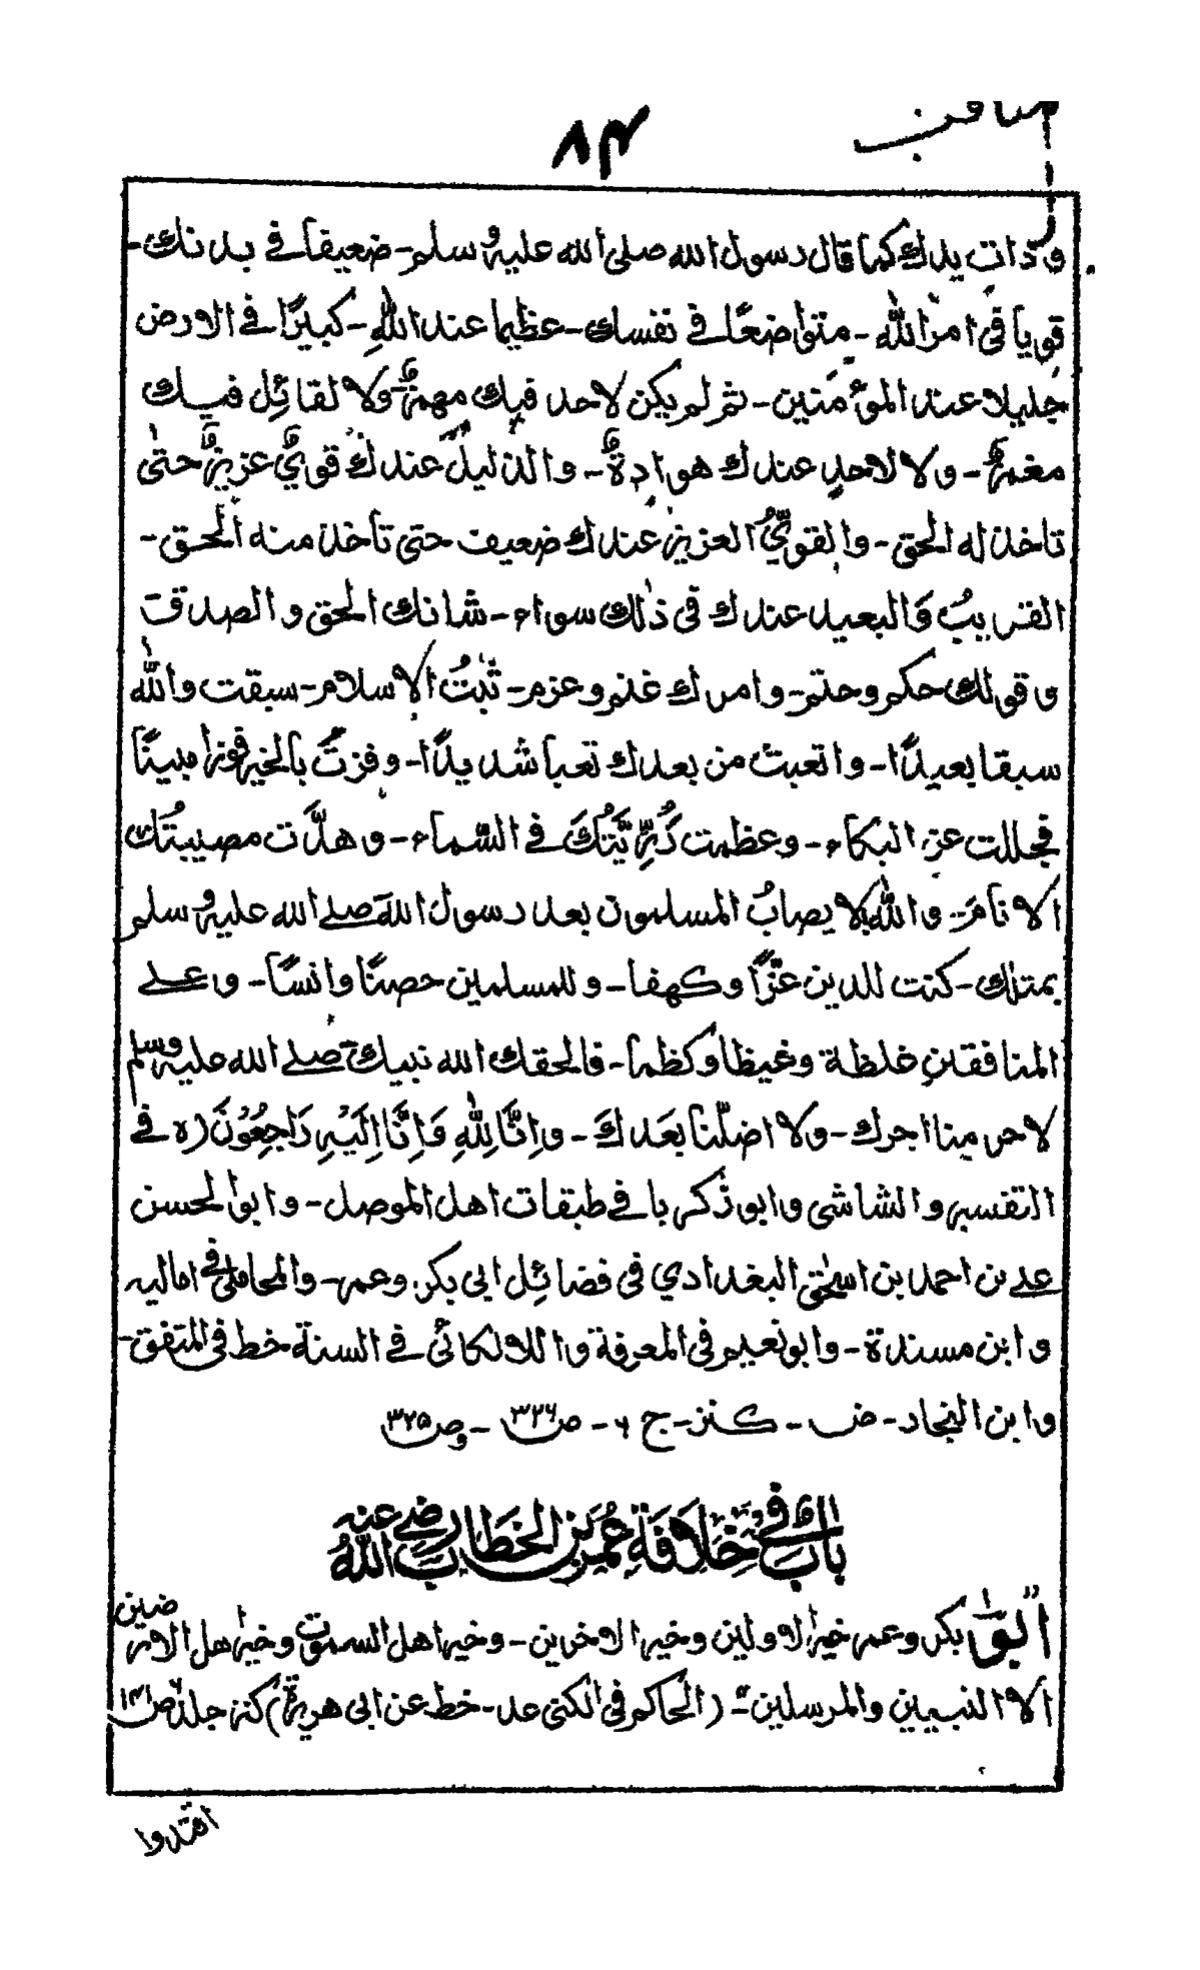 مناقب
۸۴
وذات يدك كما قال رسول الله صلى الله عليه وسلم - ضعيفا في بدنك -
قويا في امر الله - متواضعًا في نفسك - عظيما عند اللهِ - كبيرًا في الارض
جليلا عند المؤمنين - ثم لم يكن لاحد فيك مهمزةٌ - ولا لقائِل فيك
مغمزةٌ - ولا لاحدٍ عندك هوادةٌ - والذليلُ عندك قويٌ عزيزٌ حتىٰ
تاخذ له الحق - والقويُّ العزيز عندك ضعيف حتى تأخذ منه الحق -
القريبُ وَالبعيد عندك في ذٰلك سواء - شانك الحق والصدق
وقولك حكم وحتم - وامرك غنم وعزم - ثبتُ الاسلام - سبقت والله
سبقا بعيدًا - واتعبت من بعدك تعبا شديدًا - وفزتَ بالخير فوزا مبينًا
فجللت عن البكاء - وعظمت رَزِيَّتُكَ في السّماء - وهدَّت مصيبتُك
الانامَ - والله لا يصابُ المسلمون بعد رسول الله صلے الله عليه وسلم
بمثلك - كنت للدين عزًّا وكهفا - وللمسلمين حصنًا وانسًا - وعلے
المنافقين غلظة وغيظا وكظما - فالحقك الله نبيك صلے الله عليه وسلم
لاحرمنا اجرك - ولا اضلّنا بعدكَ - وإنَّا لِلّٰهِ وَاِنَّا اِلَيْهِ رَاجِعُوْنَ (ه في
التفسير والشاشي وابو زكريا في طبقات اهل الموصل - وابوا لحسن
علے بن احمد بن اسحٰق البغدادي في فضائِل ابي بكر وعمر - والمحاملي في اماليه
وابن مسندة - وابو نعيم في المعرفة واللالكائي في السنة خط في المتفق -
وابن النجاد - ض - كنز - ج ۶ - ص۳۲۶ - وص۳۲۵
بابٌ في خِلَافَةِ عُمَرَ بن الخَطَّاب رضي الله عنه
ابو بكر وعمر خيرا لاولين وخير الاخرين - وخير اهل السمٰوٰت وخير اهل الارضين
الا النبيين والمرسلين - (الحاكم في الكنى عد - خط عن ابي هريرة) كنز جلد ۶ ص۱۴۱
اقتدوا